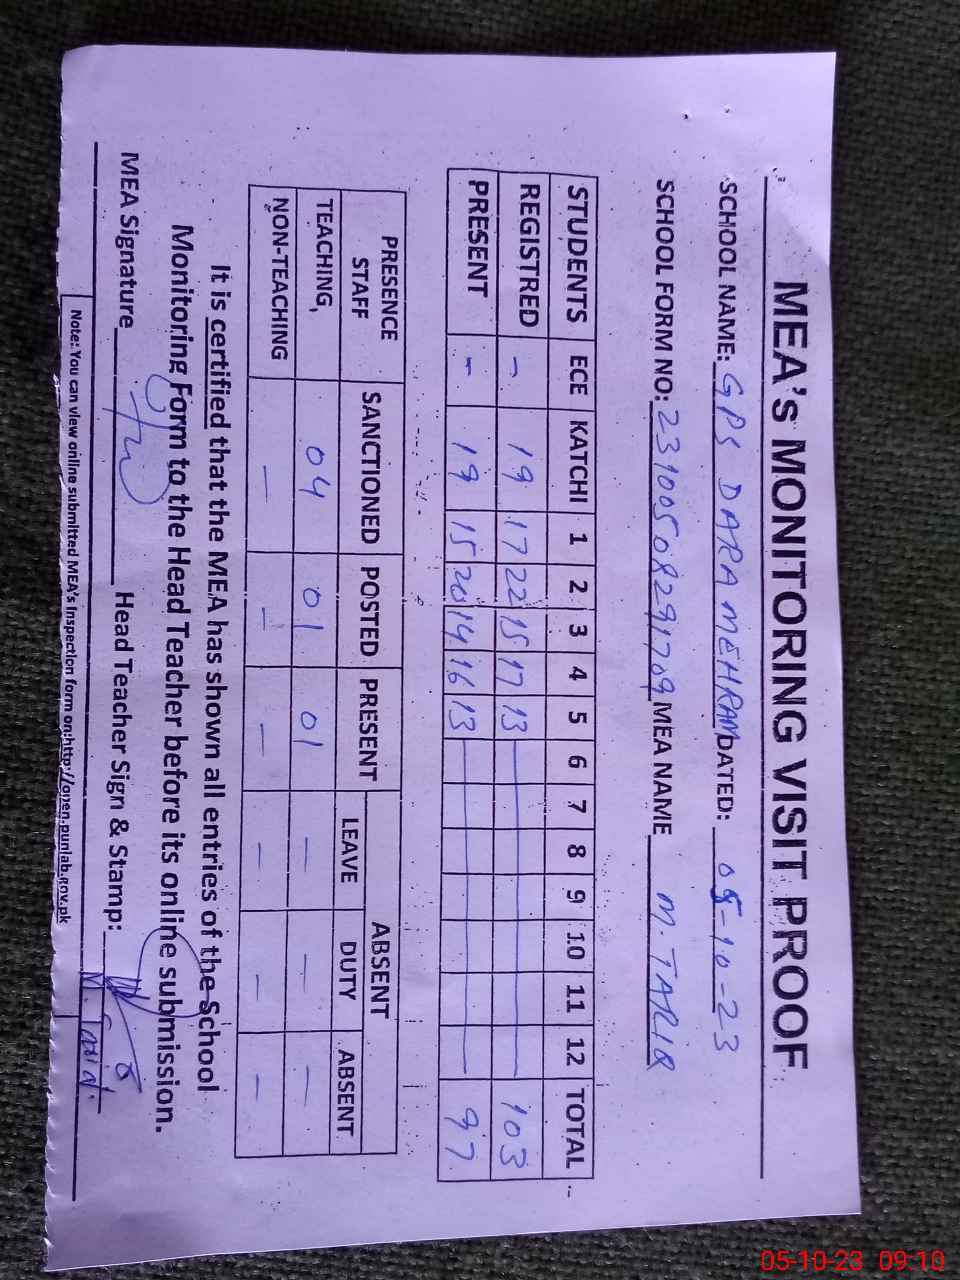 MEA's MONITORING VISIT PROOF
SCHOOL NAME: GPS DARA MEHRAM DATED: 05-10-23
SCHOOL FORM NO: 23100508291709 MEA NAME M. TARIQ
STUDENTS ECE KATCHI 1 2 3 4 5 6 7 8 9 10 11 12 TOTAL
REGISTRED - 19 17 22 15 17 13 — 103
PRESENT - 19 15 20 14 16 13 — 97
PRESENCE STAFF SANCTIONED POSTED PRESENT ABSENT
LEAVE DUTY ABSENT
TEACHING, 04 01 01 — — —
NON-TEACHING — — — — — —
It is certified that the MEA has shown all entries of the School
Monitoring Form to the Head Teacher before its online submission.
MEA Signature Head Teacher Sign & Stamp:
Note: You can view online submitted MEA's Inspection form on:http://open.punjab.gov.pk
05-10-23 09:10